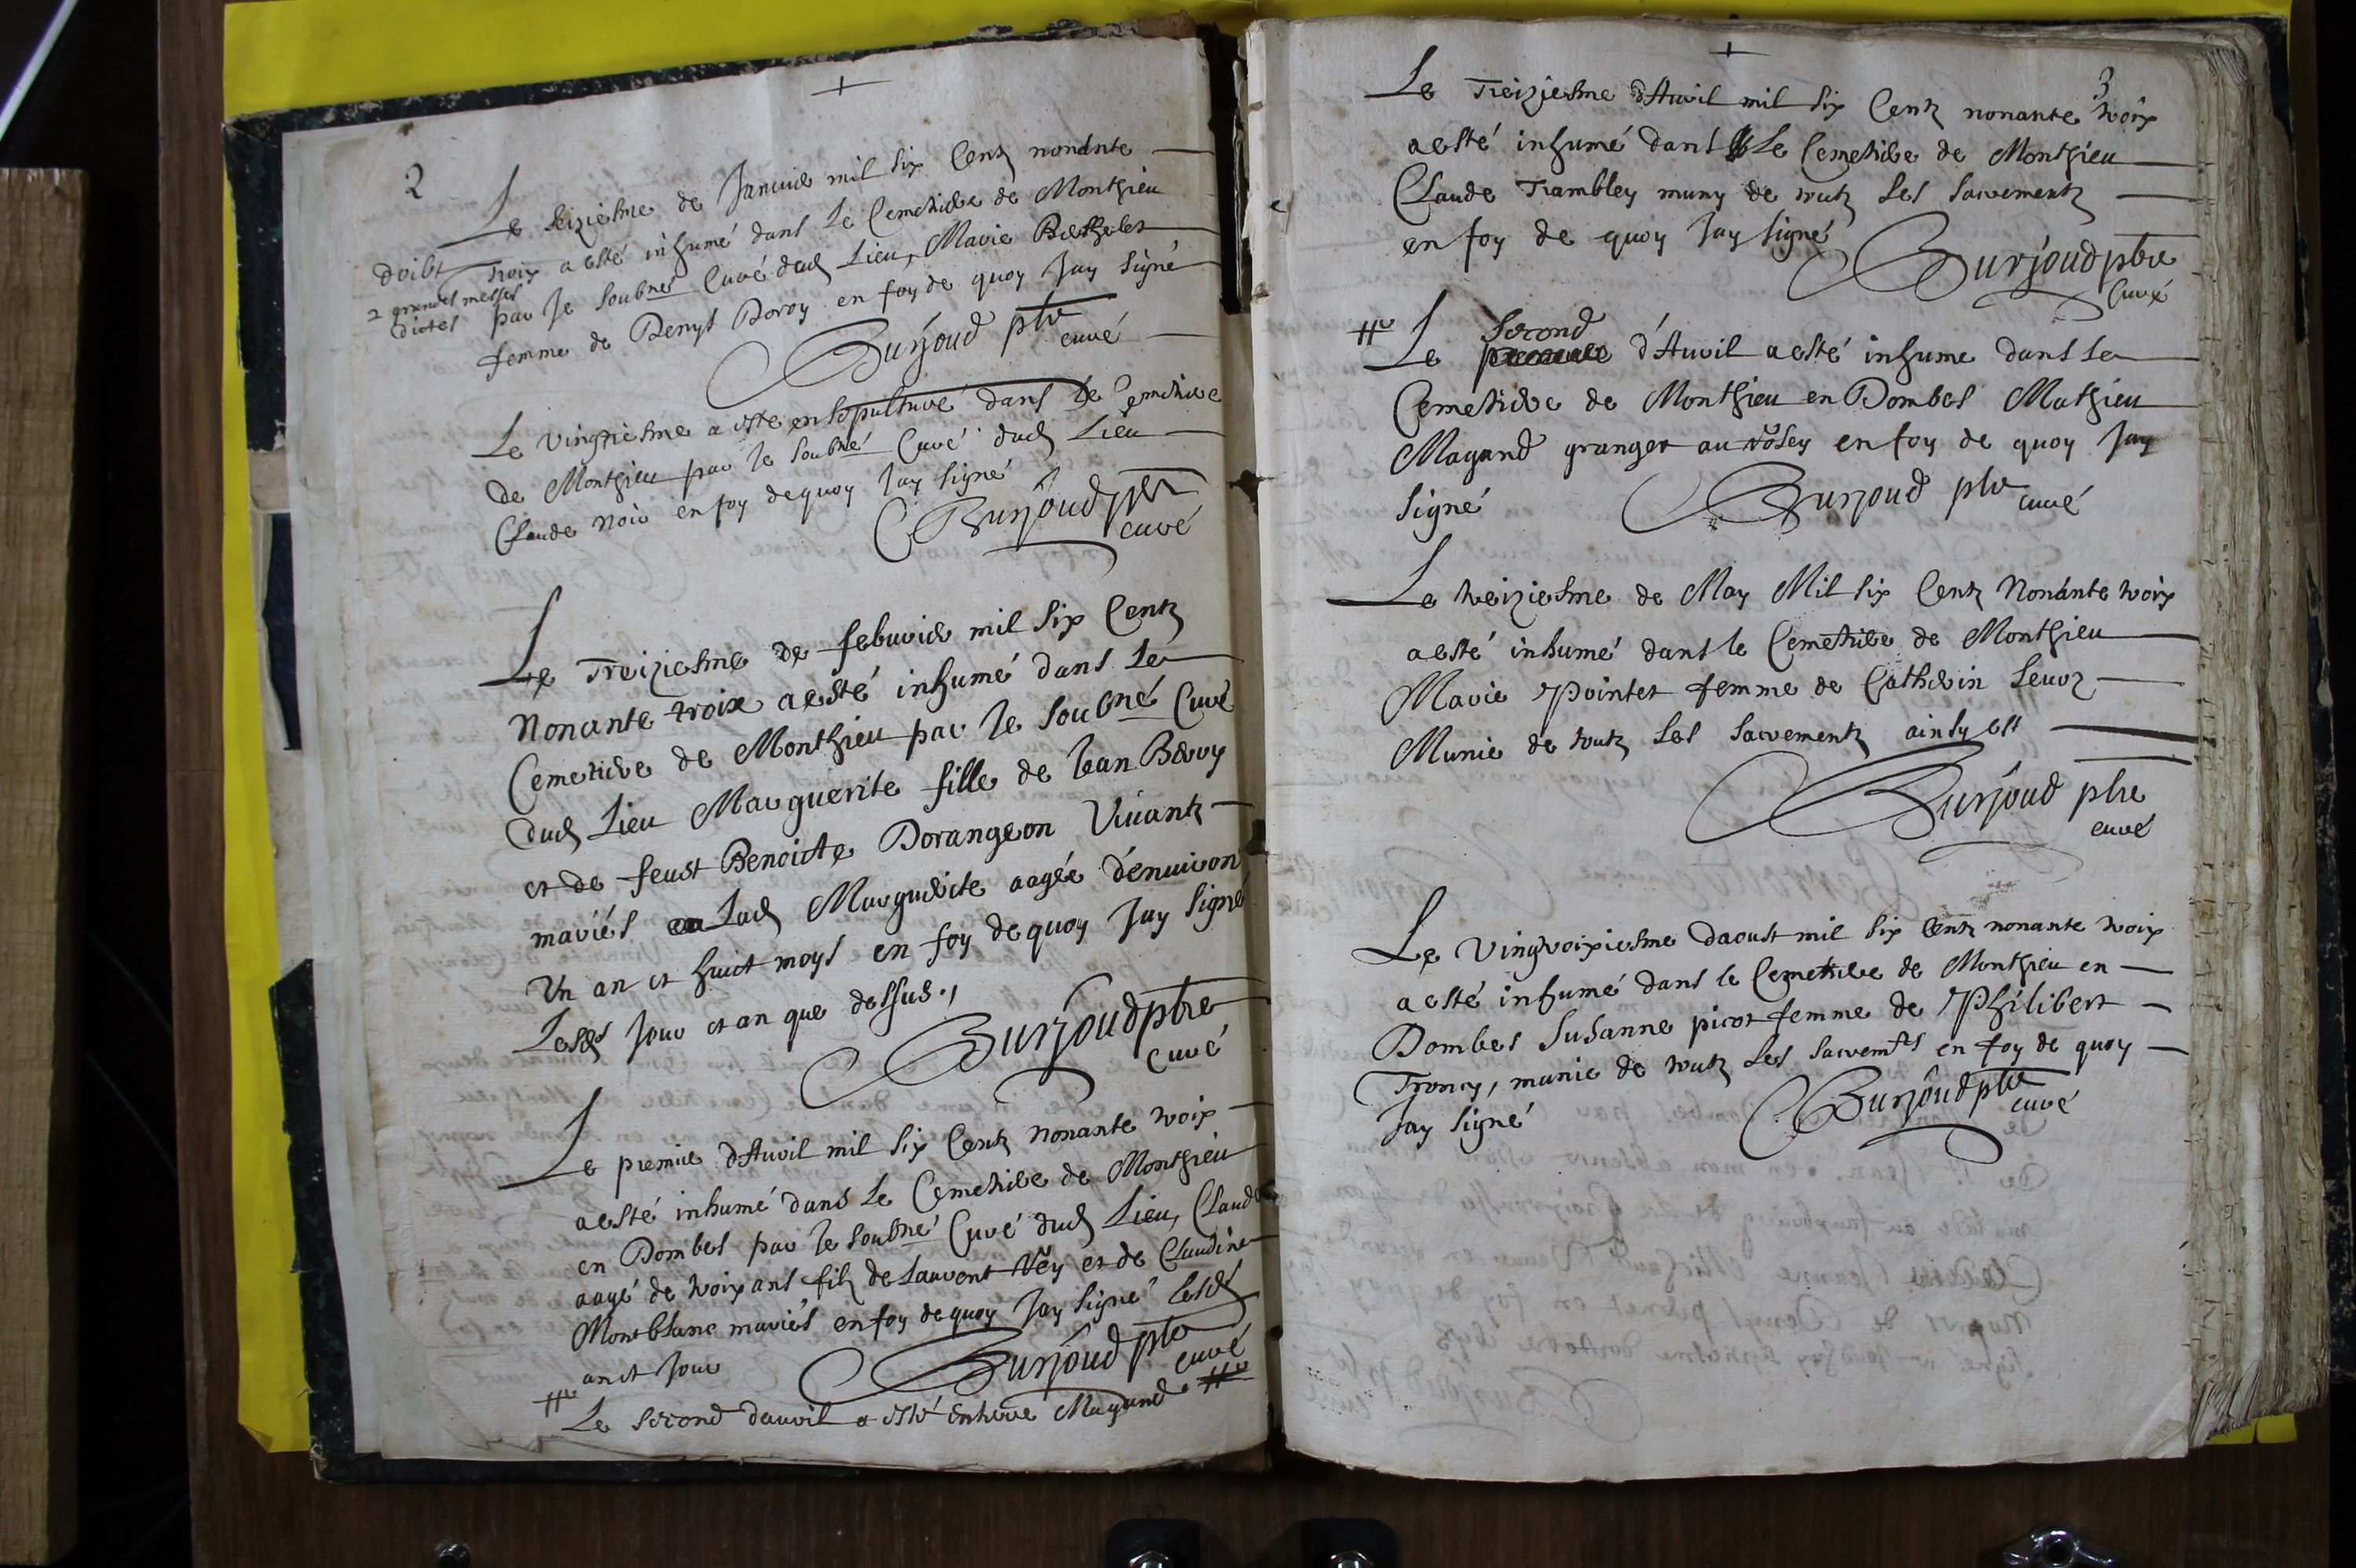 2
Le seiziesme de Januier mil six Centz nonante
troix a esté inhumé dans Le Cemetiere de Monthieu
par Je soubnes Curé dud Lieu, Marie Berthelet
femme de Denys Boroy en foy de quoy Jay signé
doibt
2 grandes messes
dictes
Burjoud ptre
curé
Le vingtiesme a esté ensepulturé dans Le Cemetiere
de Monthieu par Je soubné Curé dud Lieu
Claude Noir en foy de quoy Jay signé
Burjoud ptre
curé
Le Treiziesme de feburier mil six Centz
Nonante troix a esté inhumé dans Le
Cemetiere de Monthieu par Je soubné Curé
dud Lieu Marguerite fille de Jean Beroy
et de feust Benoicte Dorangeon Viuantz
mariés Lad Marguerite aagée d'enuiron
Un an et huict moys en foy de quoy Jay signé
Lesds Jour et an que dessus.,
Burjoud ptre
curé
Le premier d'Auril mil six Centz Nonante troix
a esté inhumé dans Le Cemetiere de Monthieu
en Dombes par Je soubné Curé dud Lieu, Claude
aagé de troix ans filz de Laurent Vey et de Claudine
Montblanc mariés en foy de quoy Jay signé Lesds
an et Jour
Burjoud ptre
curé
Le second dauril a esté enterré Magand
+
3
Le Treiziesme d'Auril mil six Centz nonante troix
a esté inhumé dans Le Cemetiere de Monthieu
Claude Trambley muny de toutz Les sacrementz
en foy de quoy Jay signé
Burjoud ptre
Curé
Le second d'Auril a esté inhume dans Le
Cemetiere de Monthieu en Dombes Mathieu
Magand granger au en foy de quoy Jay
signé
Burjoud ptre
curé
Le treiziesme de May Mil six Centz Nonante troix
a esté inhumé dans le Cemetiere de Monthieu
Marie Pointet femme de Catherin Leuoz
Munie de toutz Les sacrementz ainsy est
Burjoud ptre
curé
Le Vingtroixiesme daoust mil six Centz nonante troix
a esté inhumé dans le Cemetiere de Monthieu en
Dombes Susanne picot femme de Philibert
Troncy, munie de toutz Les sacremts en foy de quoy
Jay signé
Burjoud ptre
curé